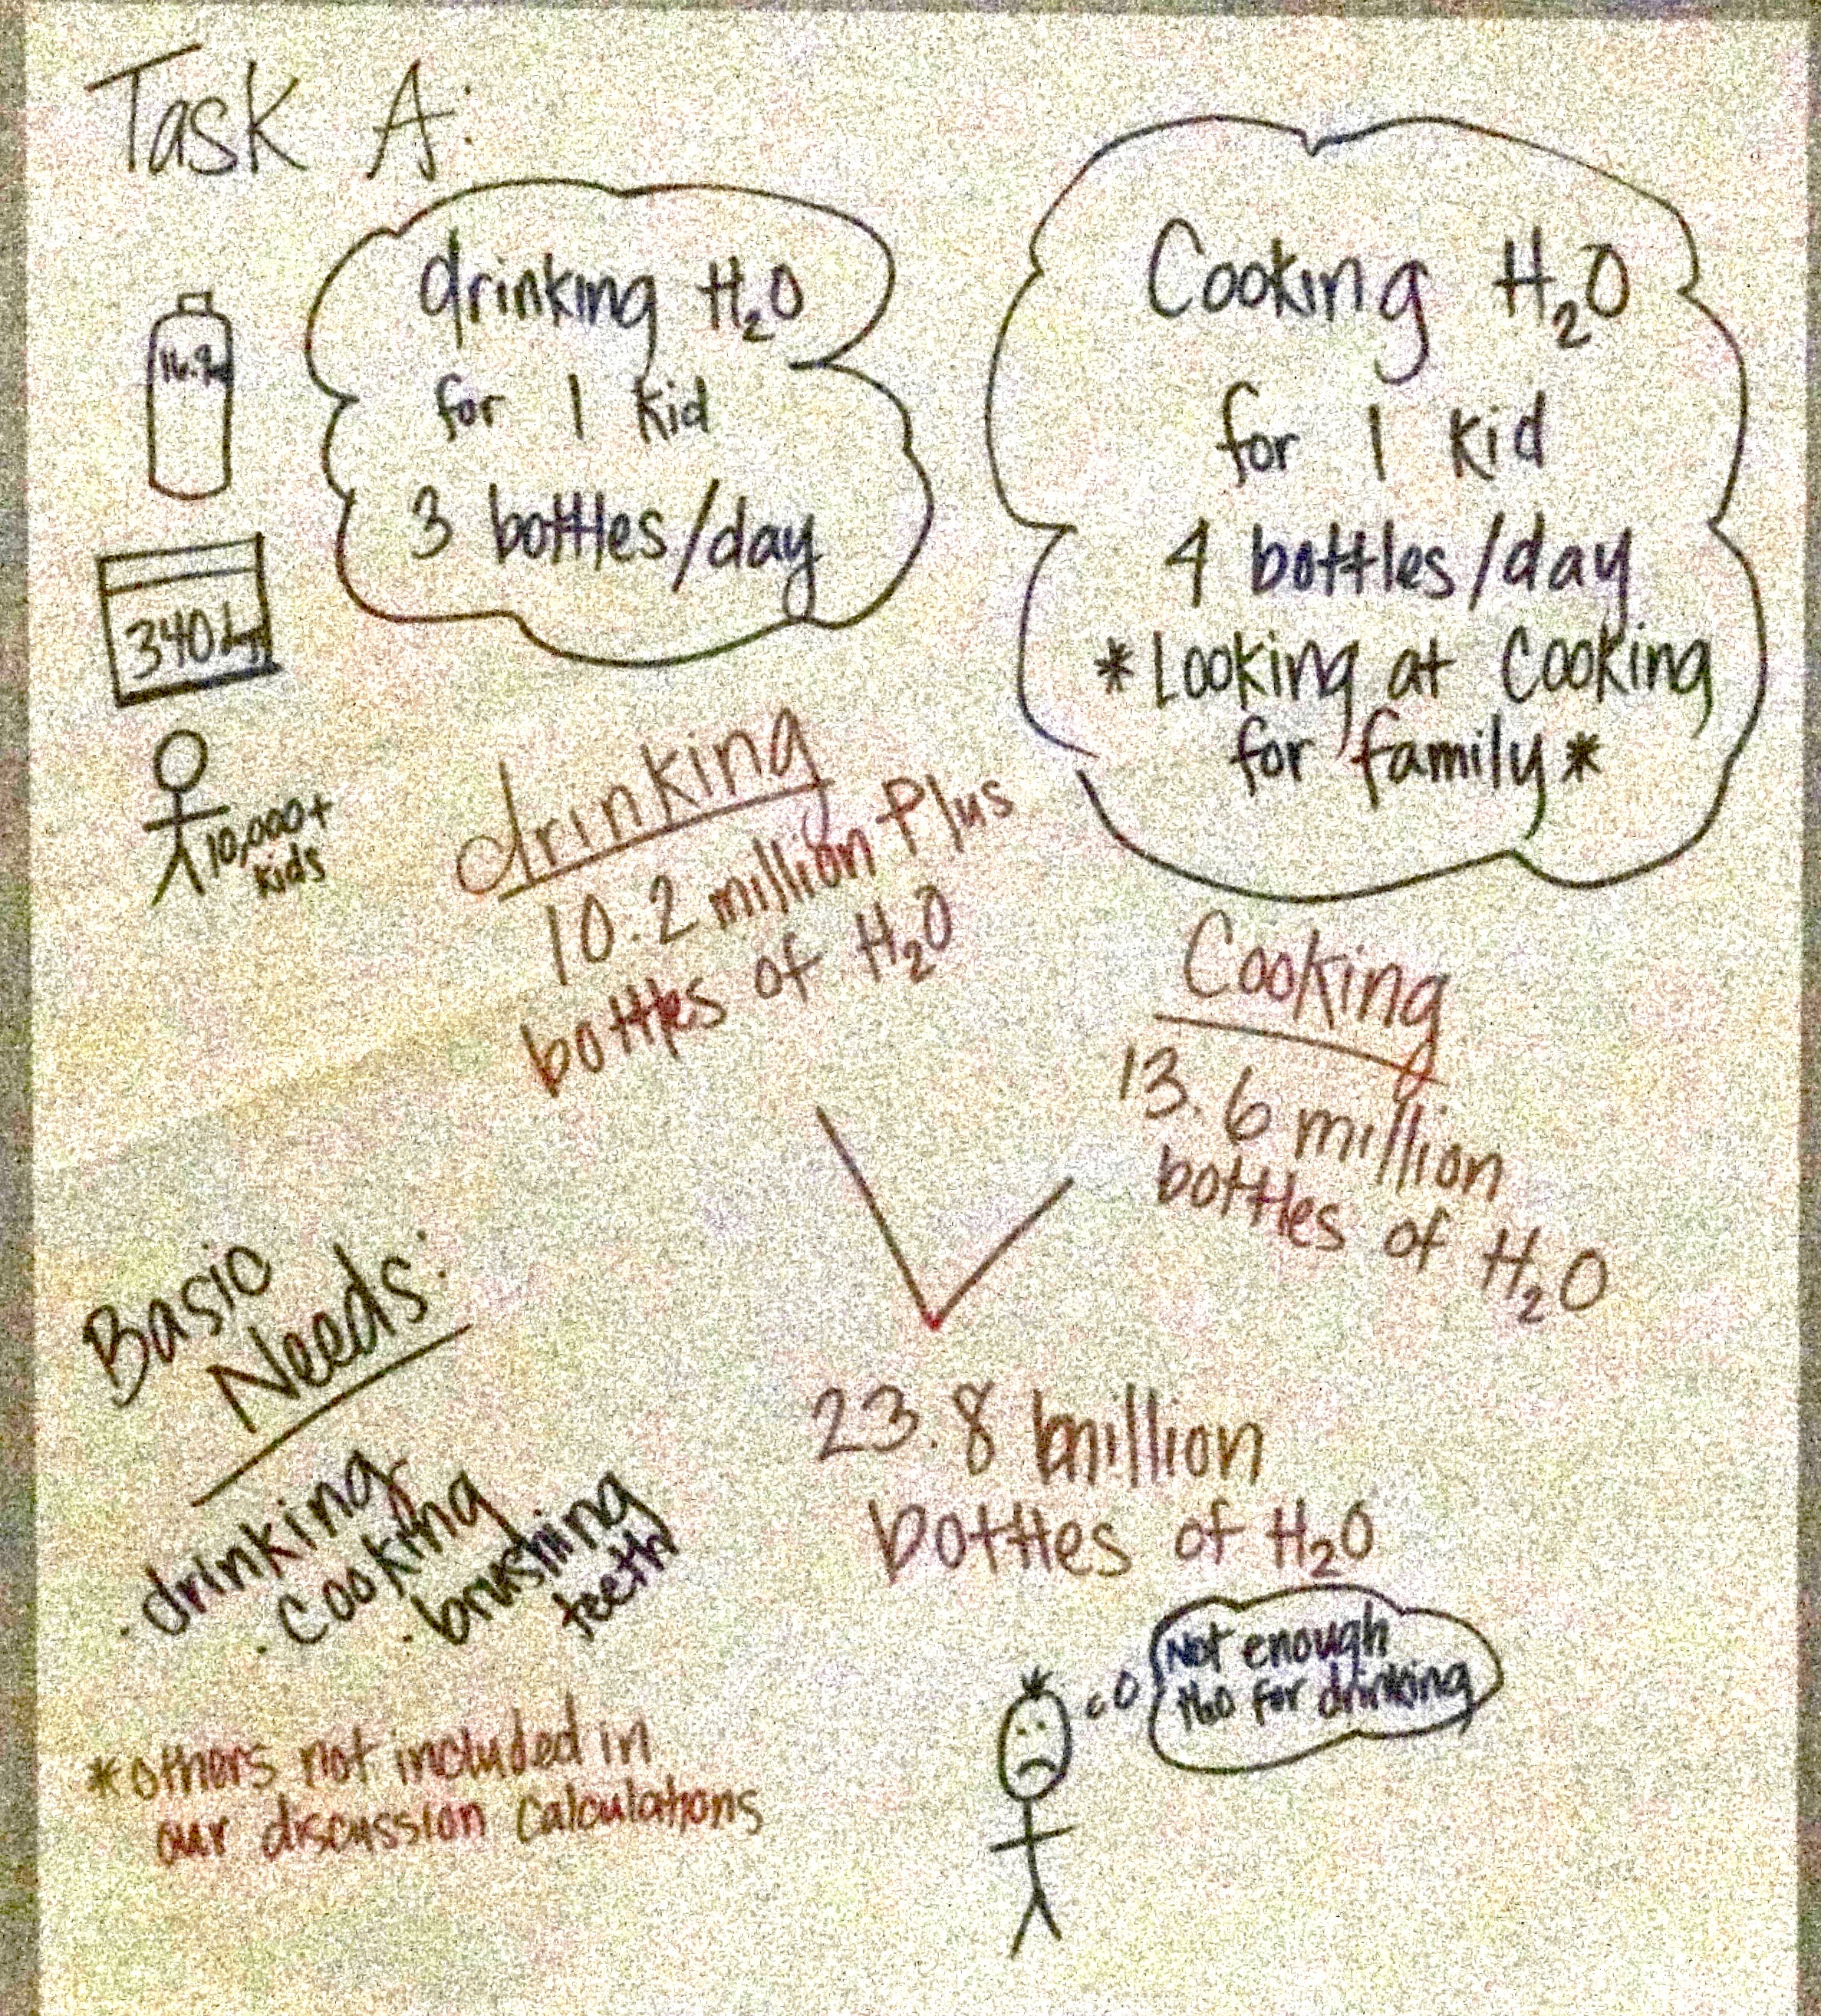 Task A:
drinking H₂O
for 1 kid
3 bottles/day
Cooking H₂O
for 1 kid
4 bottles/day
*Looking at Cooking
for family*
16.9
340
10,000+
kids
drinking
10.2 million Plus
bottles of H₂O
Cooking
13.6 million
bottles of H₂O
23.8 million
bottles of H₂O
Basic
Needs:
·drinking
·cooking
·brushing
teeth
*others not included in
our discussion calculations
Not enough
H₂O for drinking